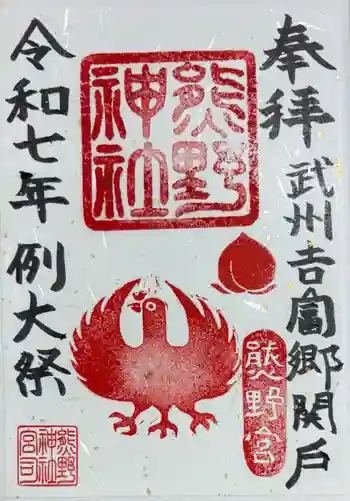 奉拝
武州吉富郷関戸
熊野神社
熊野宮
令和七年例大祭
熊野神社宮司